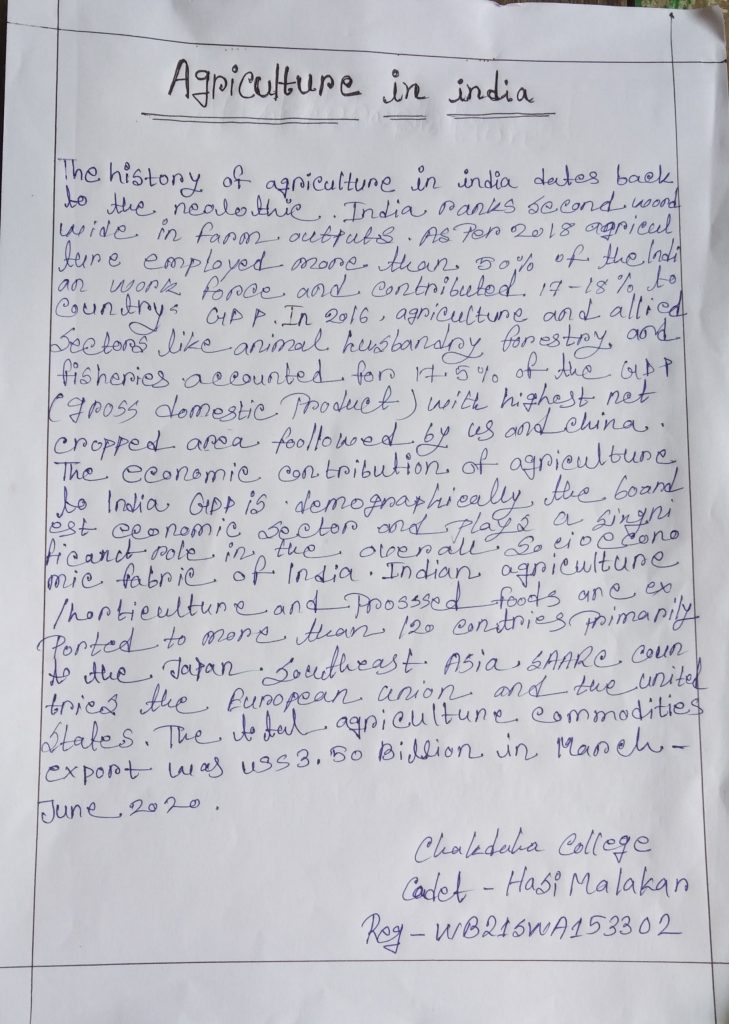 Agriculture in india
The history of agriculture in india dates back
to the neolothic. India ranks second word
wide in farm outputs. As Per 2018 agricul
ture employed more than 50% of the Indi
an work force and contributed 17-18% to
country's GDP. In 2016, agriculture and allied
sectors like animal husbandry forestry, and
fisheries accounted for 17.5% of the GDP
(gross domestic Product) with highest net
cropped area foollowed by us and china.
The economic contribution of agriculture
to India GDP is demographically the board
est economic sector and plays a singni
ficanct role in the overall socioecono
mic fabric of India. Indian agriculture
/horticulture and Prosssed foods are ex
Ported to more than 120 contries Primarily
to the Japan. Southeast Asia, SAARC coun
tries the European union and the united
States. The total agriculture commodities
export was US$3.50 Billion in March-
June 2020.
Chakdaha College
Cadet - Hasi Malakar
Reg - WB21SWA153302